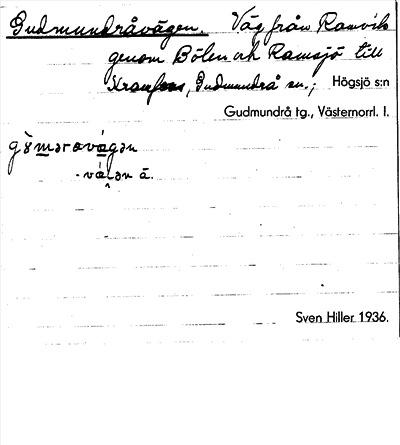 Gudmundråvägen. Väg från Ramvik
genom Bölen och Ramsjö till
Kramfors, Gudmundrå sn.; Högsjö s:n
Gudmundrå tg., Västernorrl. l.
-vä́gən ä.
Sven Hiller 1936.